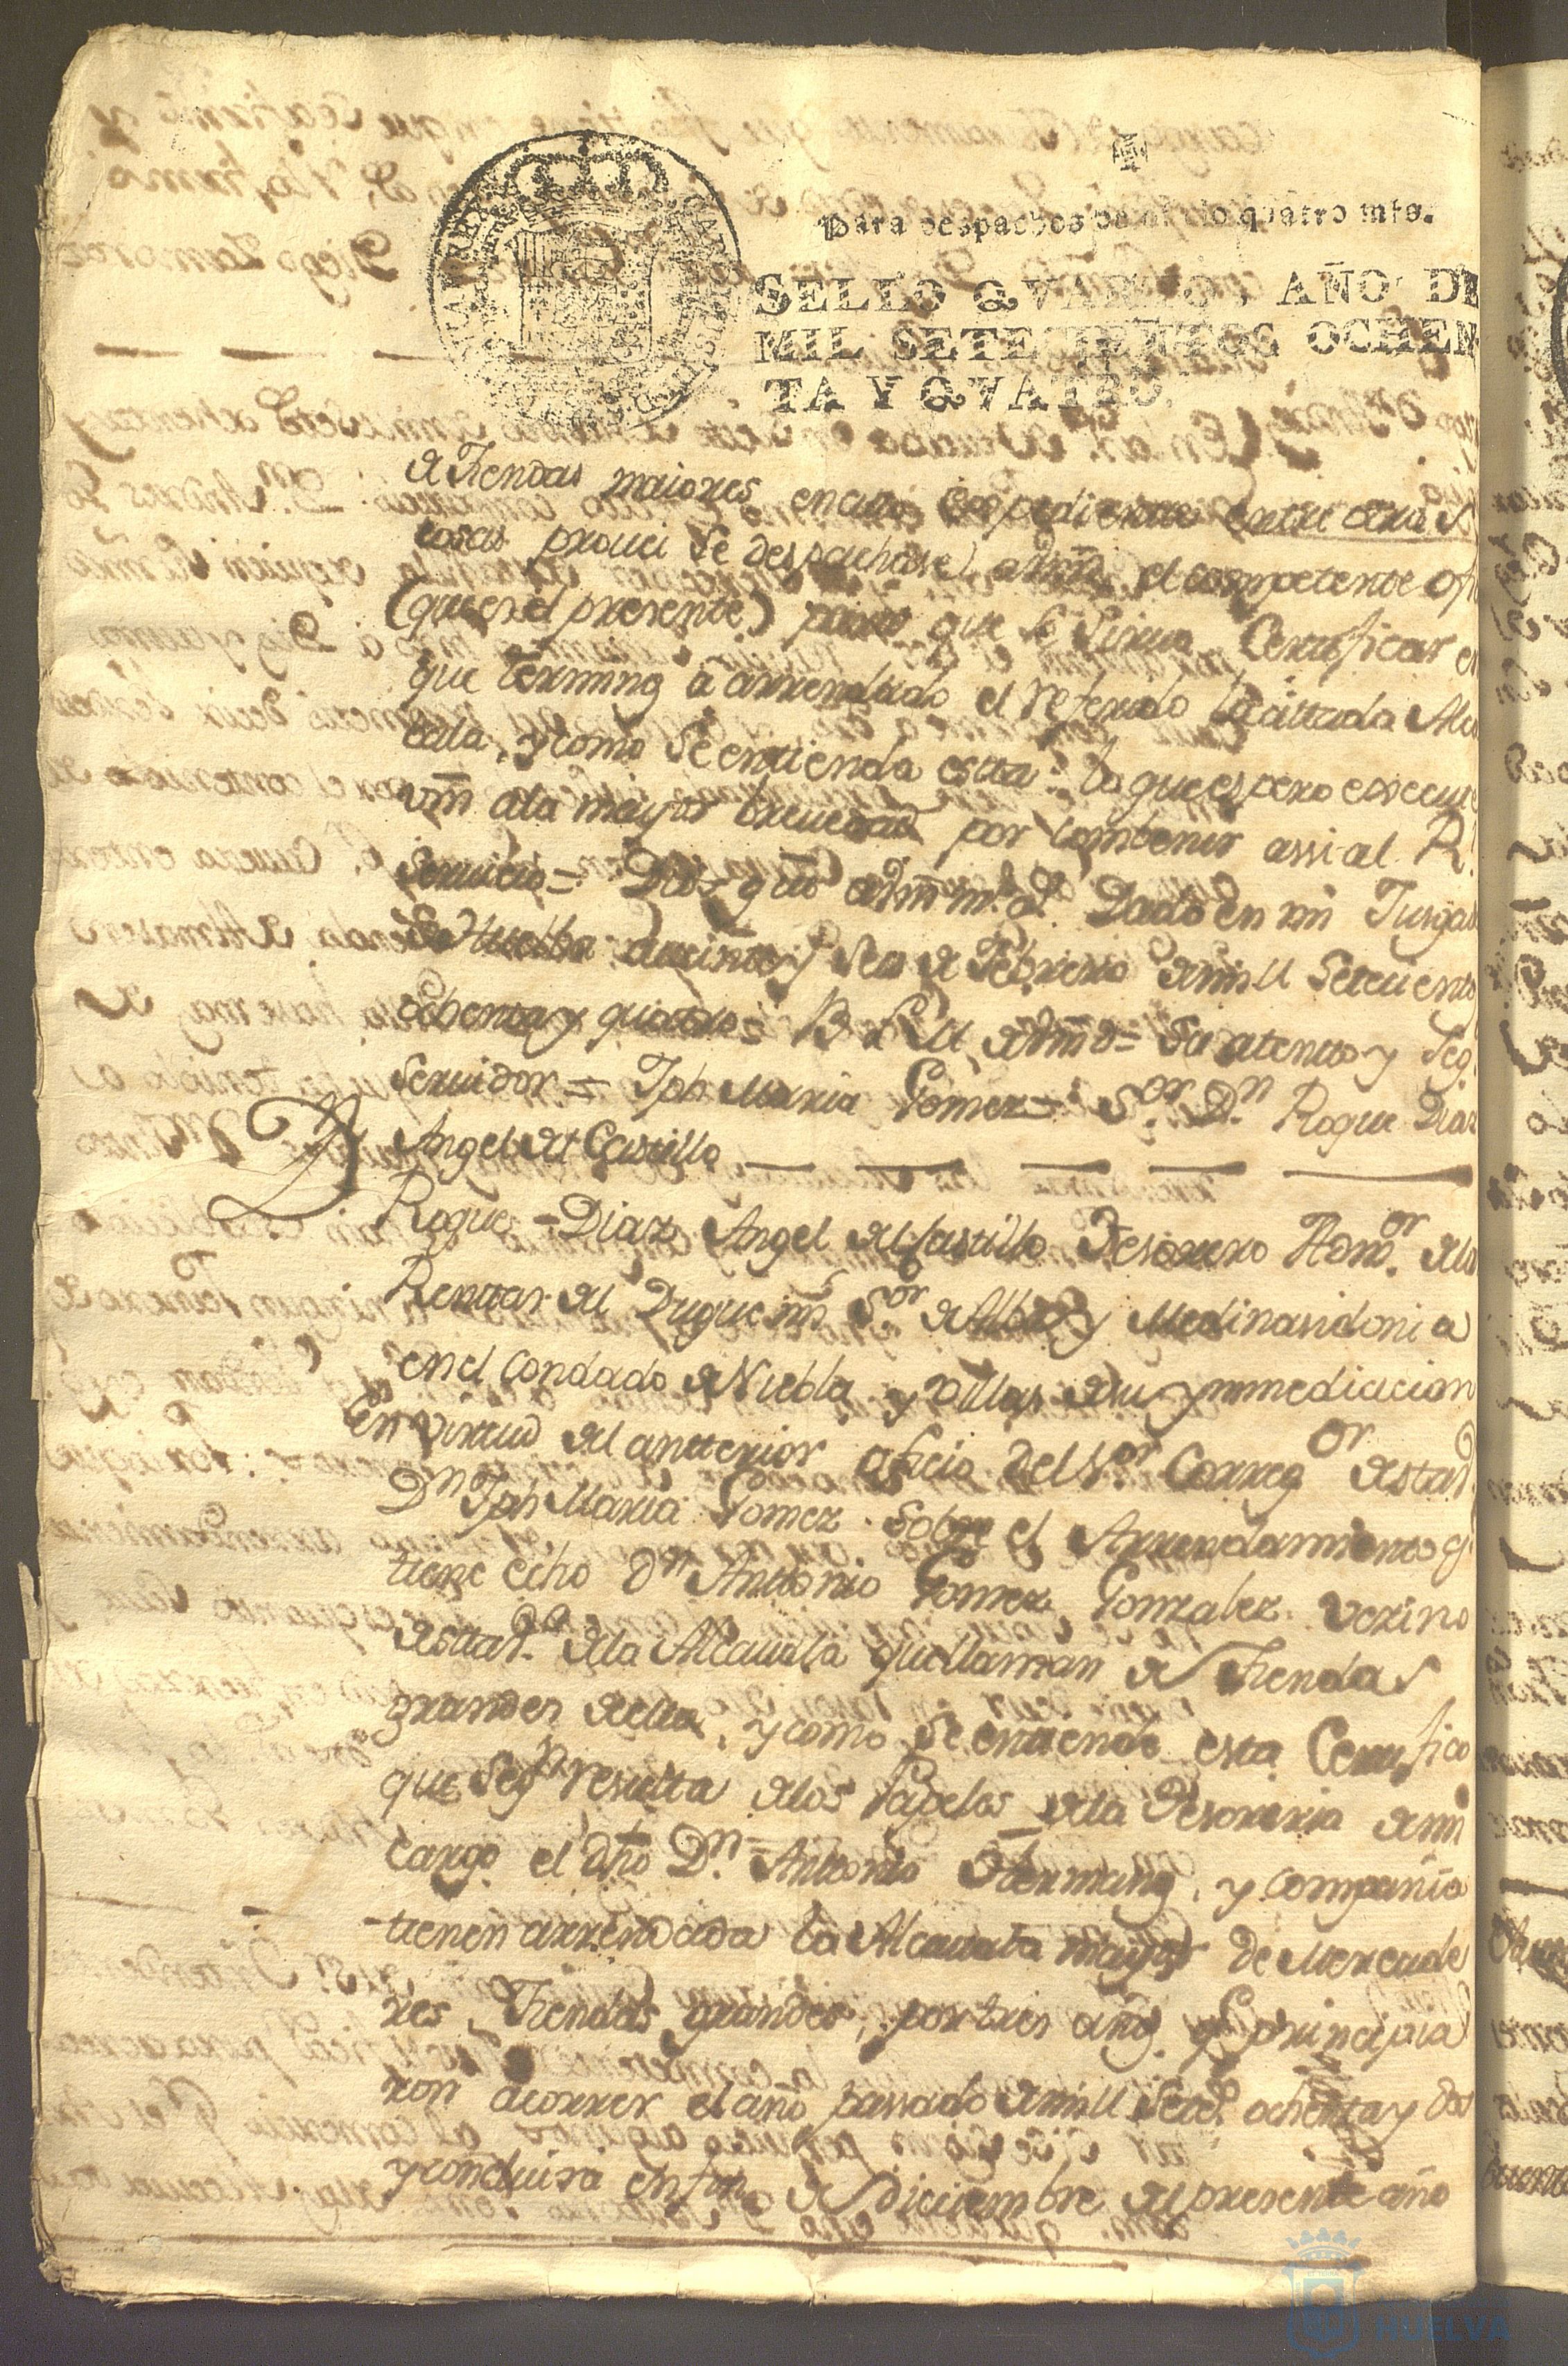 Para despachos de oficio quatro mrs.
SELLO QVARTO, AÑO DE
MIL SETECIENTOS OCHEN
TA Y QVATRO.
de Tiendas maiores en cuio Expediente entre otras
cosas provei se despachase a Vm el competente ofi
(que es el presente) para que se sirva Certificar el
que termino a arrendado el referido la citada Alca
vala, y como se entienda esta: lo que espero execute
Vm a la mayor brevedad por combenir assi al Rl
Servicio = Dios gue a Vm ms. as. Dado en mi Jusgad
de Huelba a veinte y seis de Febrero de mill setecientos
ochenta y quatro = B L M de Vmd = Su atento y Seg.
Servidor = Jph Maria Gomez = Sor. Dn Roque Diaz
Angel del Castillo
Dn Roque Diaz Angel del Castillo Tesorero Admor. de las
Rentas del Duque mi Sor de Alba y Medinasidonia
en el Condado de Niebla y Villas de su ynmediacion
En virtud del antterior oficio del Sor Corregor de esta
Dn Jph Maria Gomez sobre el Arrendamiento q
tiene echo Dn Anttonio Gomez Gonzalez vezino
de estta Va. de la Alcavala que llaman de Tiendas
grandes de ella, y como se entiende esta Certifico
que segn resulta de los Papeles de la Tesoreria de mi
cargo el dho Dn. Antonio Hermano, y compañia
tienen arrendada la Alcavala mayor de Mercade
res, Tiendas grandes, por tres años q principia
ron a correr el año passado de mill Setecs. ochenta y dos
y concluira en fin de Diciembre del presente año
HUELVA